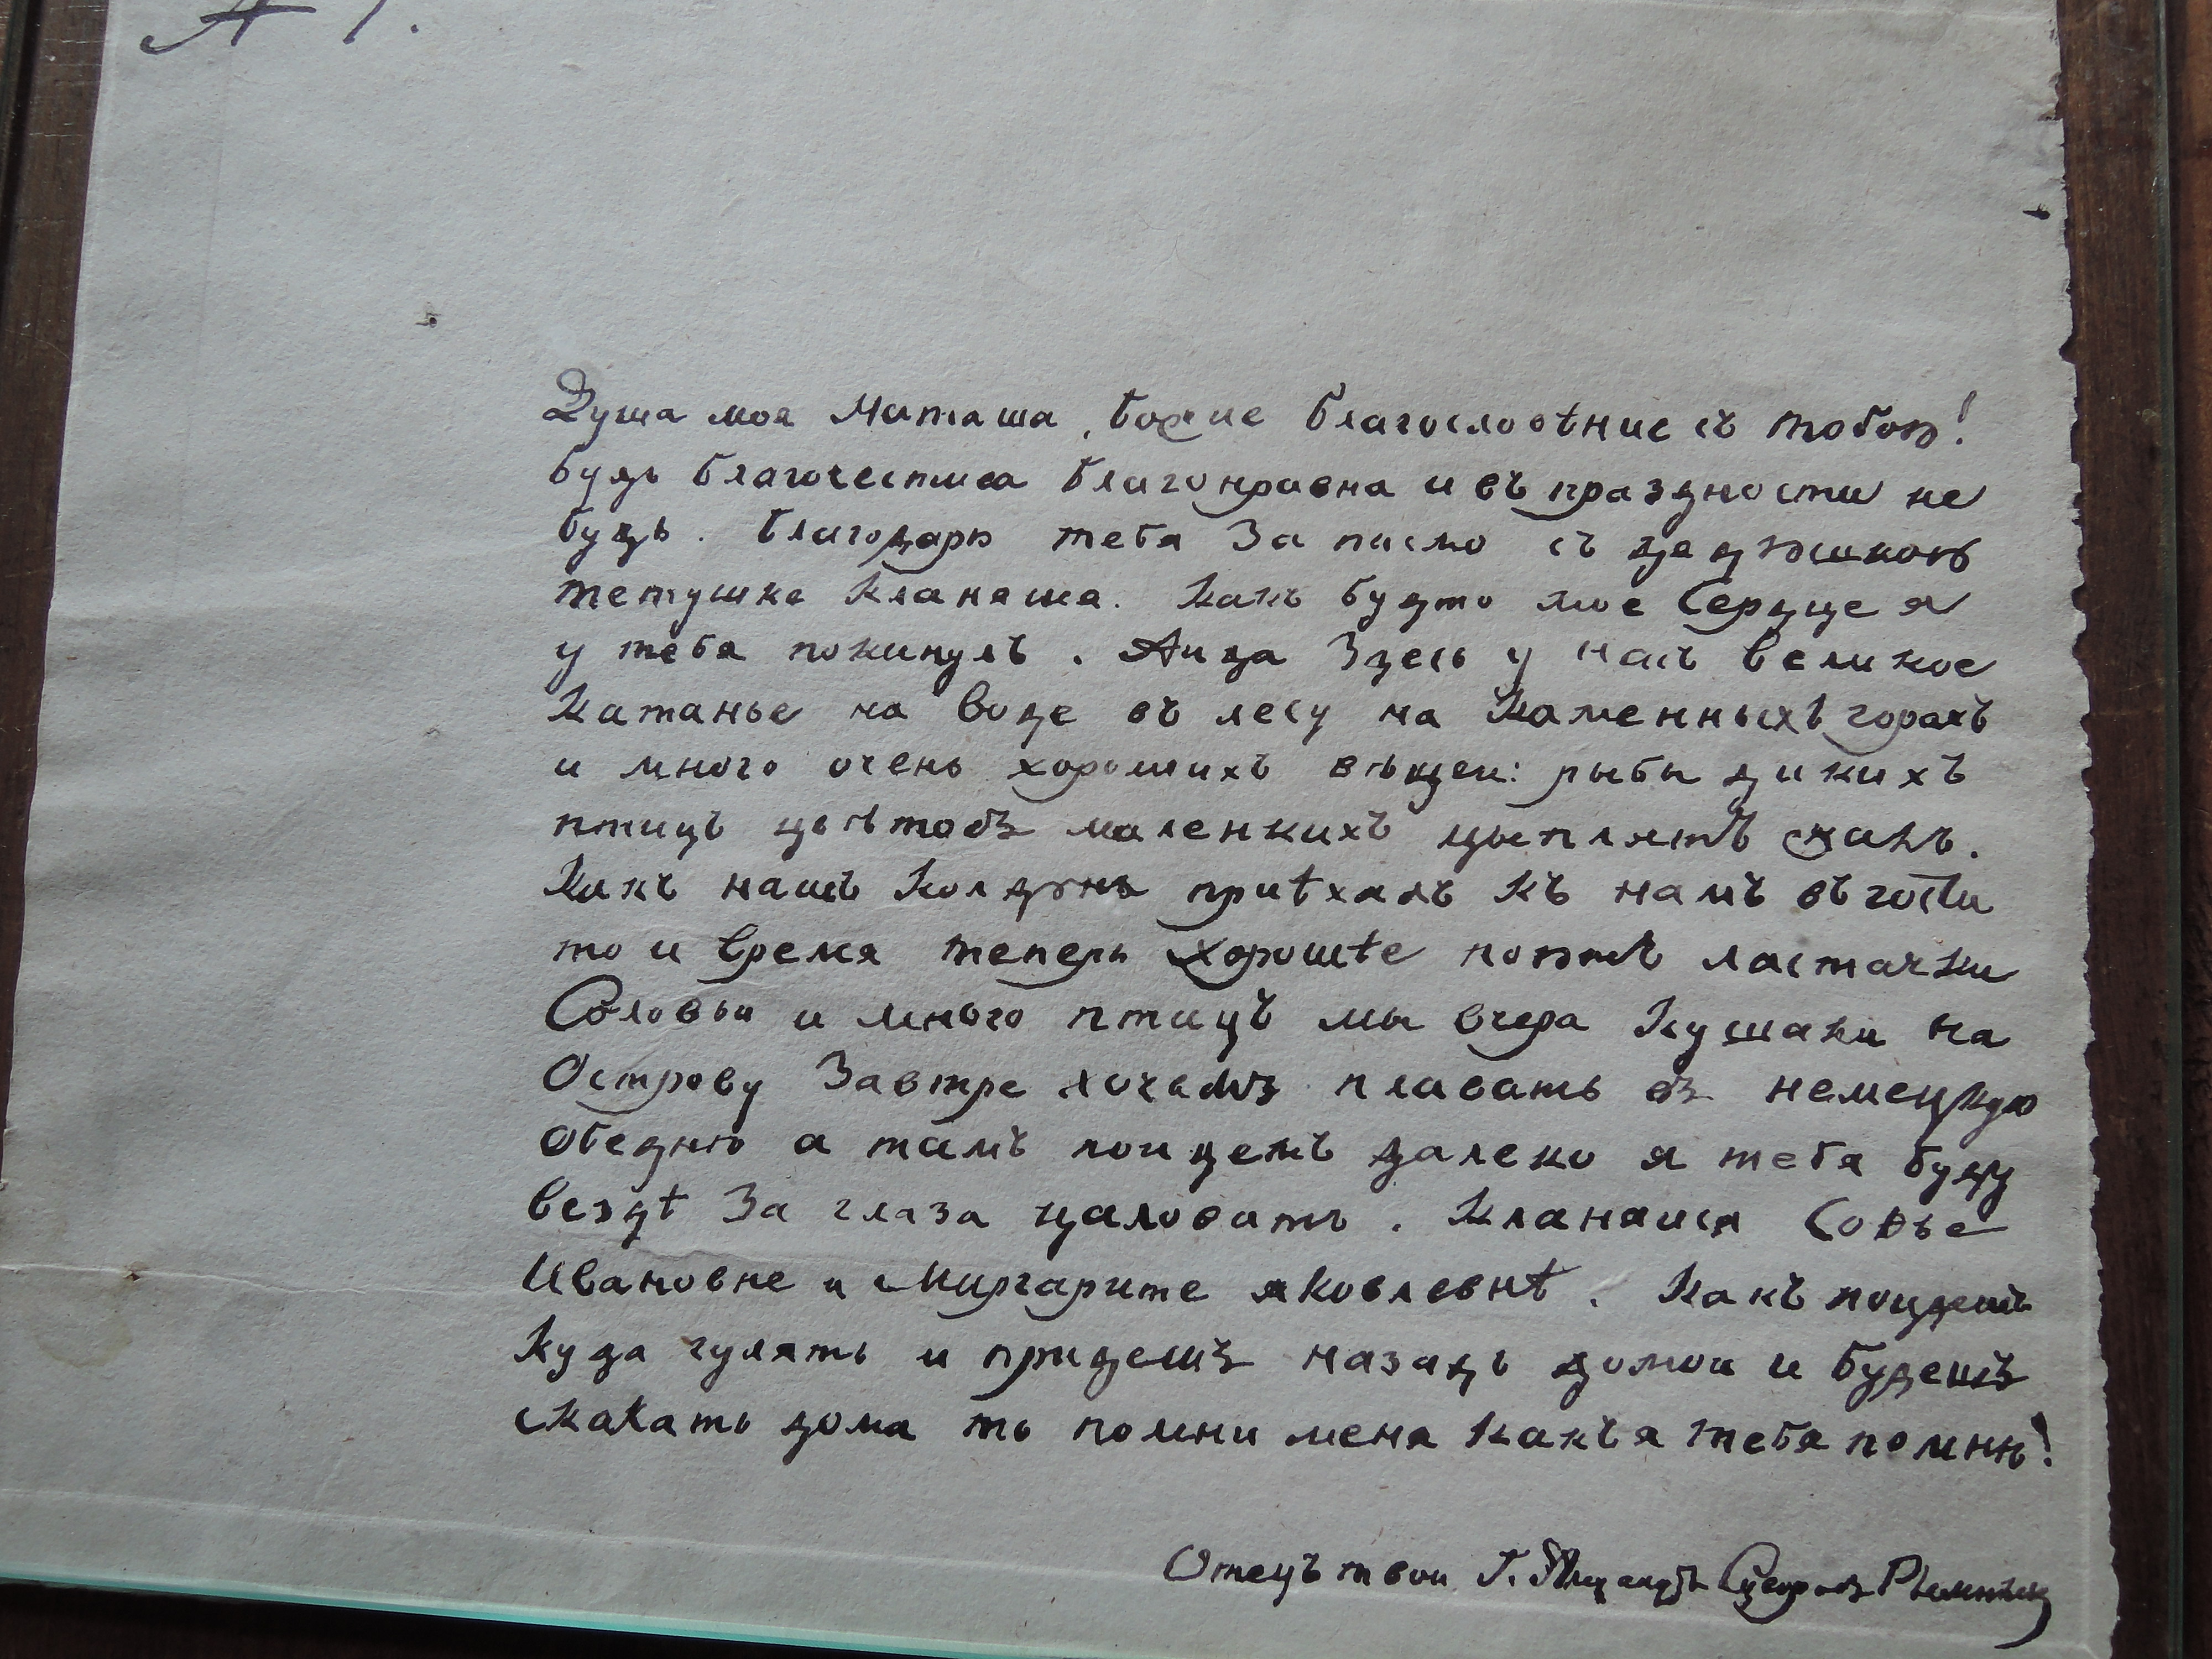 Душа моя Наташа, божие благословѣние съ тобою!
будь благочестива благонравна и въ праздности не
будь. благодарю тебя За писмо съ дядюшкою
тетушке кланяися. Какъ будто мое Сердце я
у тебя покинулъ. Аида Здесь у насъ великое
Катанье на воде въ лесу на Каменныхъ горахъ
и много очень хорошихъ вѣщеи: рыбы дикихъ
птицъ цвѣтовъ маленкихъ цыплятъ жаль.
Какъ нашъ Колдунъ приѣхалъ къ намъ въ гости
то и время теперь хорошѣе поютъ ласточки
Соловьи и много птицъ мы вчера Кушали на
Острову Завтре хочемъ плавать въ немецкую
обедню а тамъ поидемъ далеко я тебя буду
вездѣ За глаза цаловать. Кланяися Софье
Ивановне и Маргарите яковлевнѣ. Какъ поидешъ
Куда гулять и придешъ назадъ домои и будешъ
скакать дома то помни меня какъ я тебя помню!
Отецъ твои Г. Александръ Суворовъ Рымникск